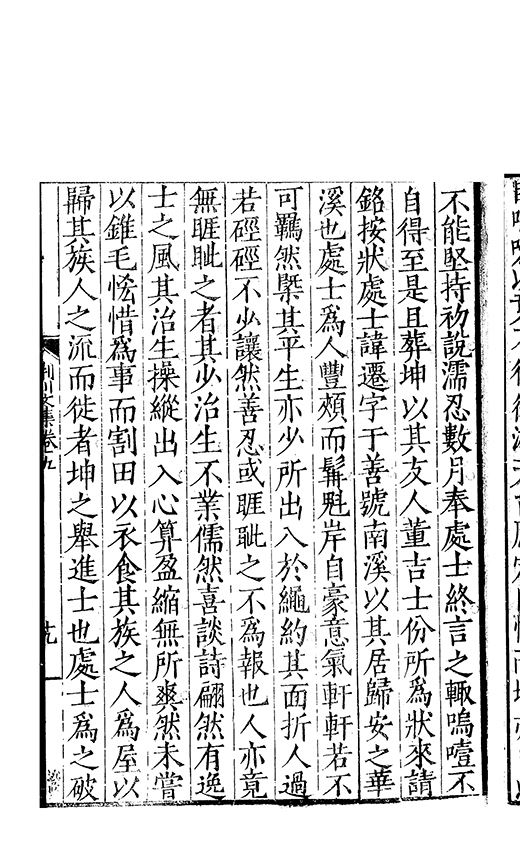 不能堅持初說濡忍數月奉處士終言之輒嗚噎不
自得至是且葬坤以其友人董吉士份所爲狀來請
銘按狀處士諱遷字于善號南溪以其居歸安之華
溪也處士爲人豐頰而髯魁岸自豪意氣軒軒若不
可羈然槩其平生亦少所出入於繩約其面折人過
若硜硜不少讓然善忍或睚眦之不爲報也人亦竟
無睚眦之者其少治生不業儒然喜談詩翩然有逸
士之風其治生操縱出入心算盈縮無所爽然未嘗
以錐毛恡惜爲事而割田以衣食其族之人爲屋以
歸其族人之流而徙者坤之舉進士也處士爲之破
荊川文集卷五